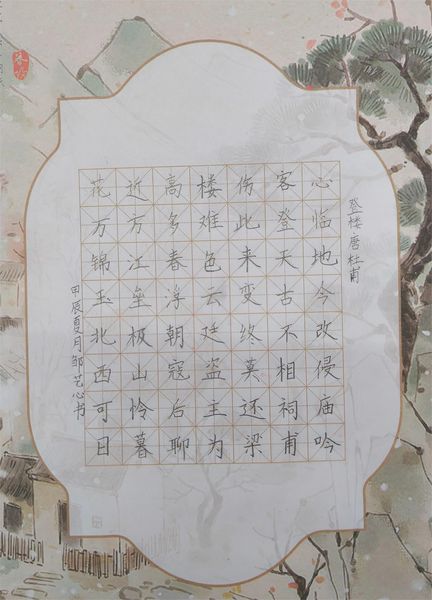 登楼 唐 杜甫
花近高楼伤客心
万方多难此登临
锦江春色来天地
玉垒浮云变古今
北极朝廷终不改
西山寇盗莫相侵
可怜后主还祠庙
日暮聊为梁甫吟
甲辰夏月邹艺心书